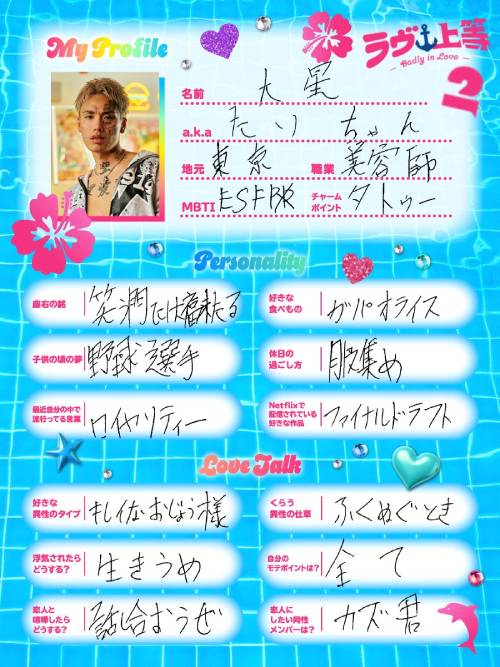 My Profile
ラヴ上等
Badly in Love
2
名前 大星
a.k.a たいちゃん
地元 東京 職業 美容師
MBTI チャームポイント タトゥー
Personality
座右の銘
好きな食べもの ガパオライス
子供の頃の夢 野球選手
休日の過ごし方 服集め
最近自分の中で流行ってる言葉 ロイヤリティー
Netflixで配信されている好きな作品 ファイナルドラフト
Love Talk
好きな異性のタイプ キレイなおじょう様
くらう異性の仕草 ふくぬぐとき
浮気されたらどうする? 生きうめ
自分のモテポイントは? 全て
恋人と喧嘩したらどうする? 話し合おうぜ
恋人にしたい男性メンバーは? カズ君